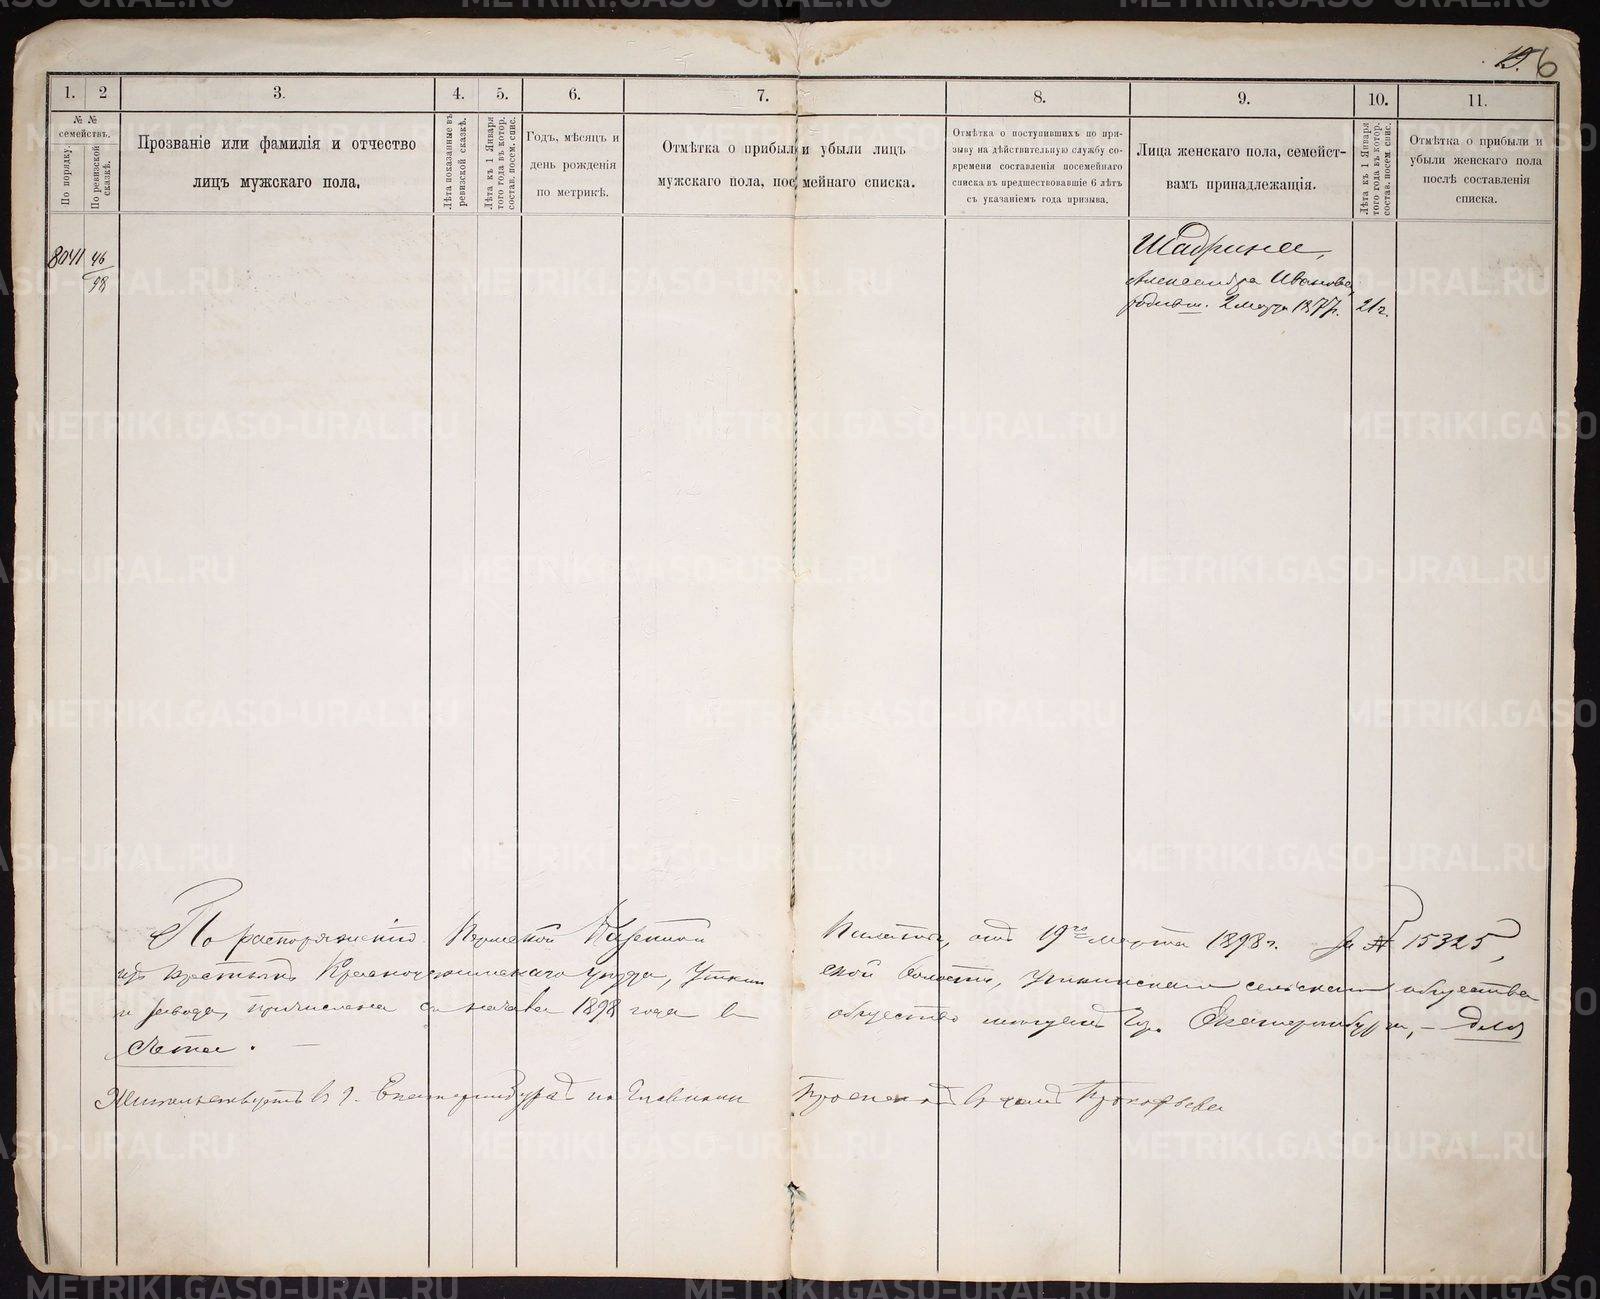 15. 6
1. 2 3. 4. 5. 6. 7. 8. 9. 10. 11.
№ № семействъ.
По порядку.
По ревизской сказкѣ.
Прозваніе или фамилія и отчество
лицъ мужскаго пола.
Лѣта показанные въ
ревизской сказкѣ.
Лѣта къ 1 Января
того года въ котор.
состав. посем. спис.
Годъ, мѣсяцъ и
день рожденія
по метрикѣ.
Отмѣтка о прибыли и убыли лицъ
мужскаго пола, посемейнаго списка.
Отмѣтка о поступившихъ по при-
зыву на дѣйствительную службу со-
времени составленія посемейнаго
списка въ предшествовавшіе 6 лѣтъ
съ указаніемъ года призыва.
Лица женскаго пола, семейст-
вамъ принадлежащія.
Лѣта къ 1 Января
того года въ котор.
состав. посем. спис.
Отмѣтка о прибыли и
убыли женскаго пола
послѣ составленія
списка.
8041 46/98
Шадрина,
Александра Иванова,
родивш. 2 марта 1877г. 21 г.
По распоряженію Пермской Казенной Палаты, отъ 19го марта 1898 г. за № 15325,
изъ крестьянъ Красноуфимскаго уѣзда, Уткинской волости, Уткинскаго сельскаго общества
и завода, причислена съ начала 1898 года въ общество мѣщанъ гор. Екатеринбурга, — для
счета. —
Жительствуетъ въ г. Екатеринбургѣ по Главному Проспекту въ домѣ Прокофьева
METRIKI.GASO-URAL.RU